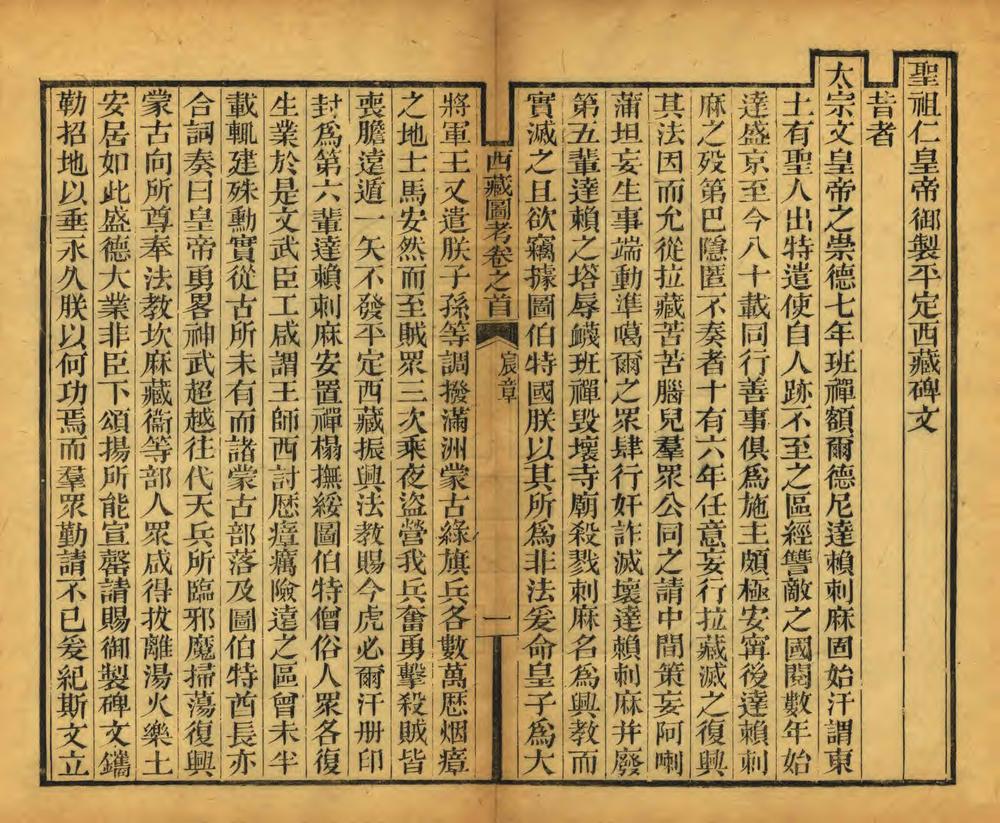 聖祖仁皇帝御製平定西藏碑文
昔者
太宗文皇帝之崇德七年班禪額爾德尼達賴剌麻固始汗謂東
土有聖人出特遣使自人跡不至之區經讐敵之國閱數年始
達盛京至今八十載同行善事俱爲施主頗極安甯後達賴剌
麻之歿第巴隱匿不奏者十有六年任意妄行拉藏滅之復興
其法因而允從拉藏苦苦腦兒羣眾公同之請中間策妄阿喇
蒲坦妄生事端動準噶爾之眾肆行奸詐滅壞達賴剌麻并廢
第五輩達賴之塔辱衊班禪毀壞寺廟殺戮剌麻名爲興教而
實滅之且欲竊據圖伯特國朕以其所爲非法爰命皇子爲大
西藏圖考卷之首
宸章
一
將軍王又遣朕子孫等調撥滿洲蒙古綠旗兵各數萬歷烟瘴
之地士馬安然而至賊眾三次乘夜盜營我兵奮勇擊殺賊皆
喪膽遠遁一矢不發平定西藏振興法教賜今虎必爾汗册印
封爲第六輩達賴剌麻安置禪榻撫綏圖伯特僧俗人眾各復
生業於是文武臣工咸謂王師西討歷瘴癘險遠之區曾未半
載輒建殊勳實從古所未有而諸蒙古部落及圖伯特酋長亦
合詞奏曰皇帝勇畧神武超越往代天兵所臨邪魔掃蕩復興
蒙古向所尊奉法教坎麻藏衞等部人眾咸得拔離湯火樂土
安居如此盛德大業非臣下頌揚所能宣罄請賜御製碑文鐫
勒招地以垂永久朕以何功焉而羣眾勤請不已爰紀斯文立